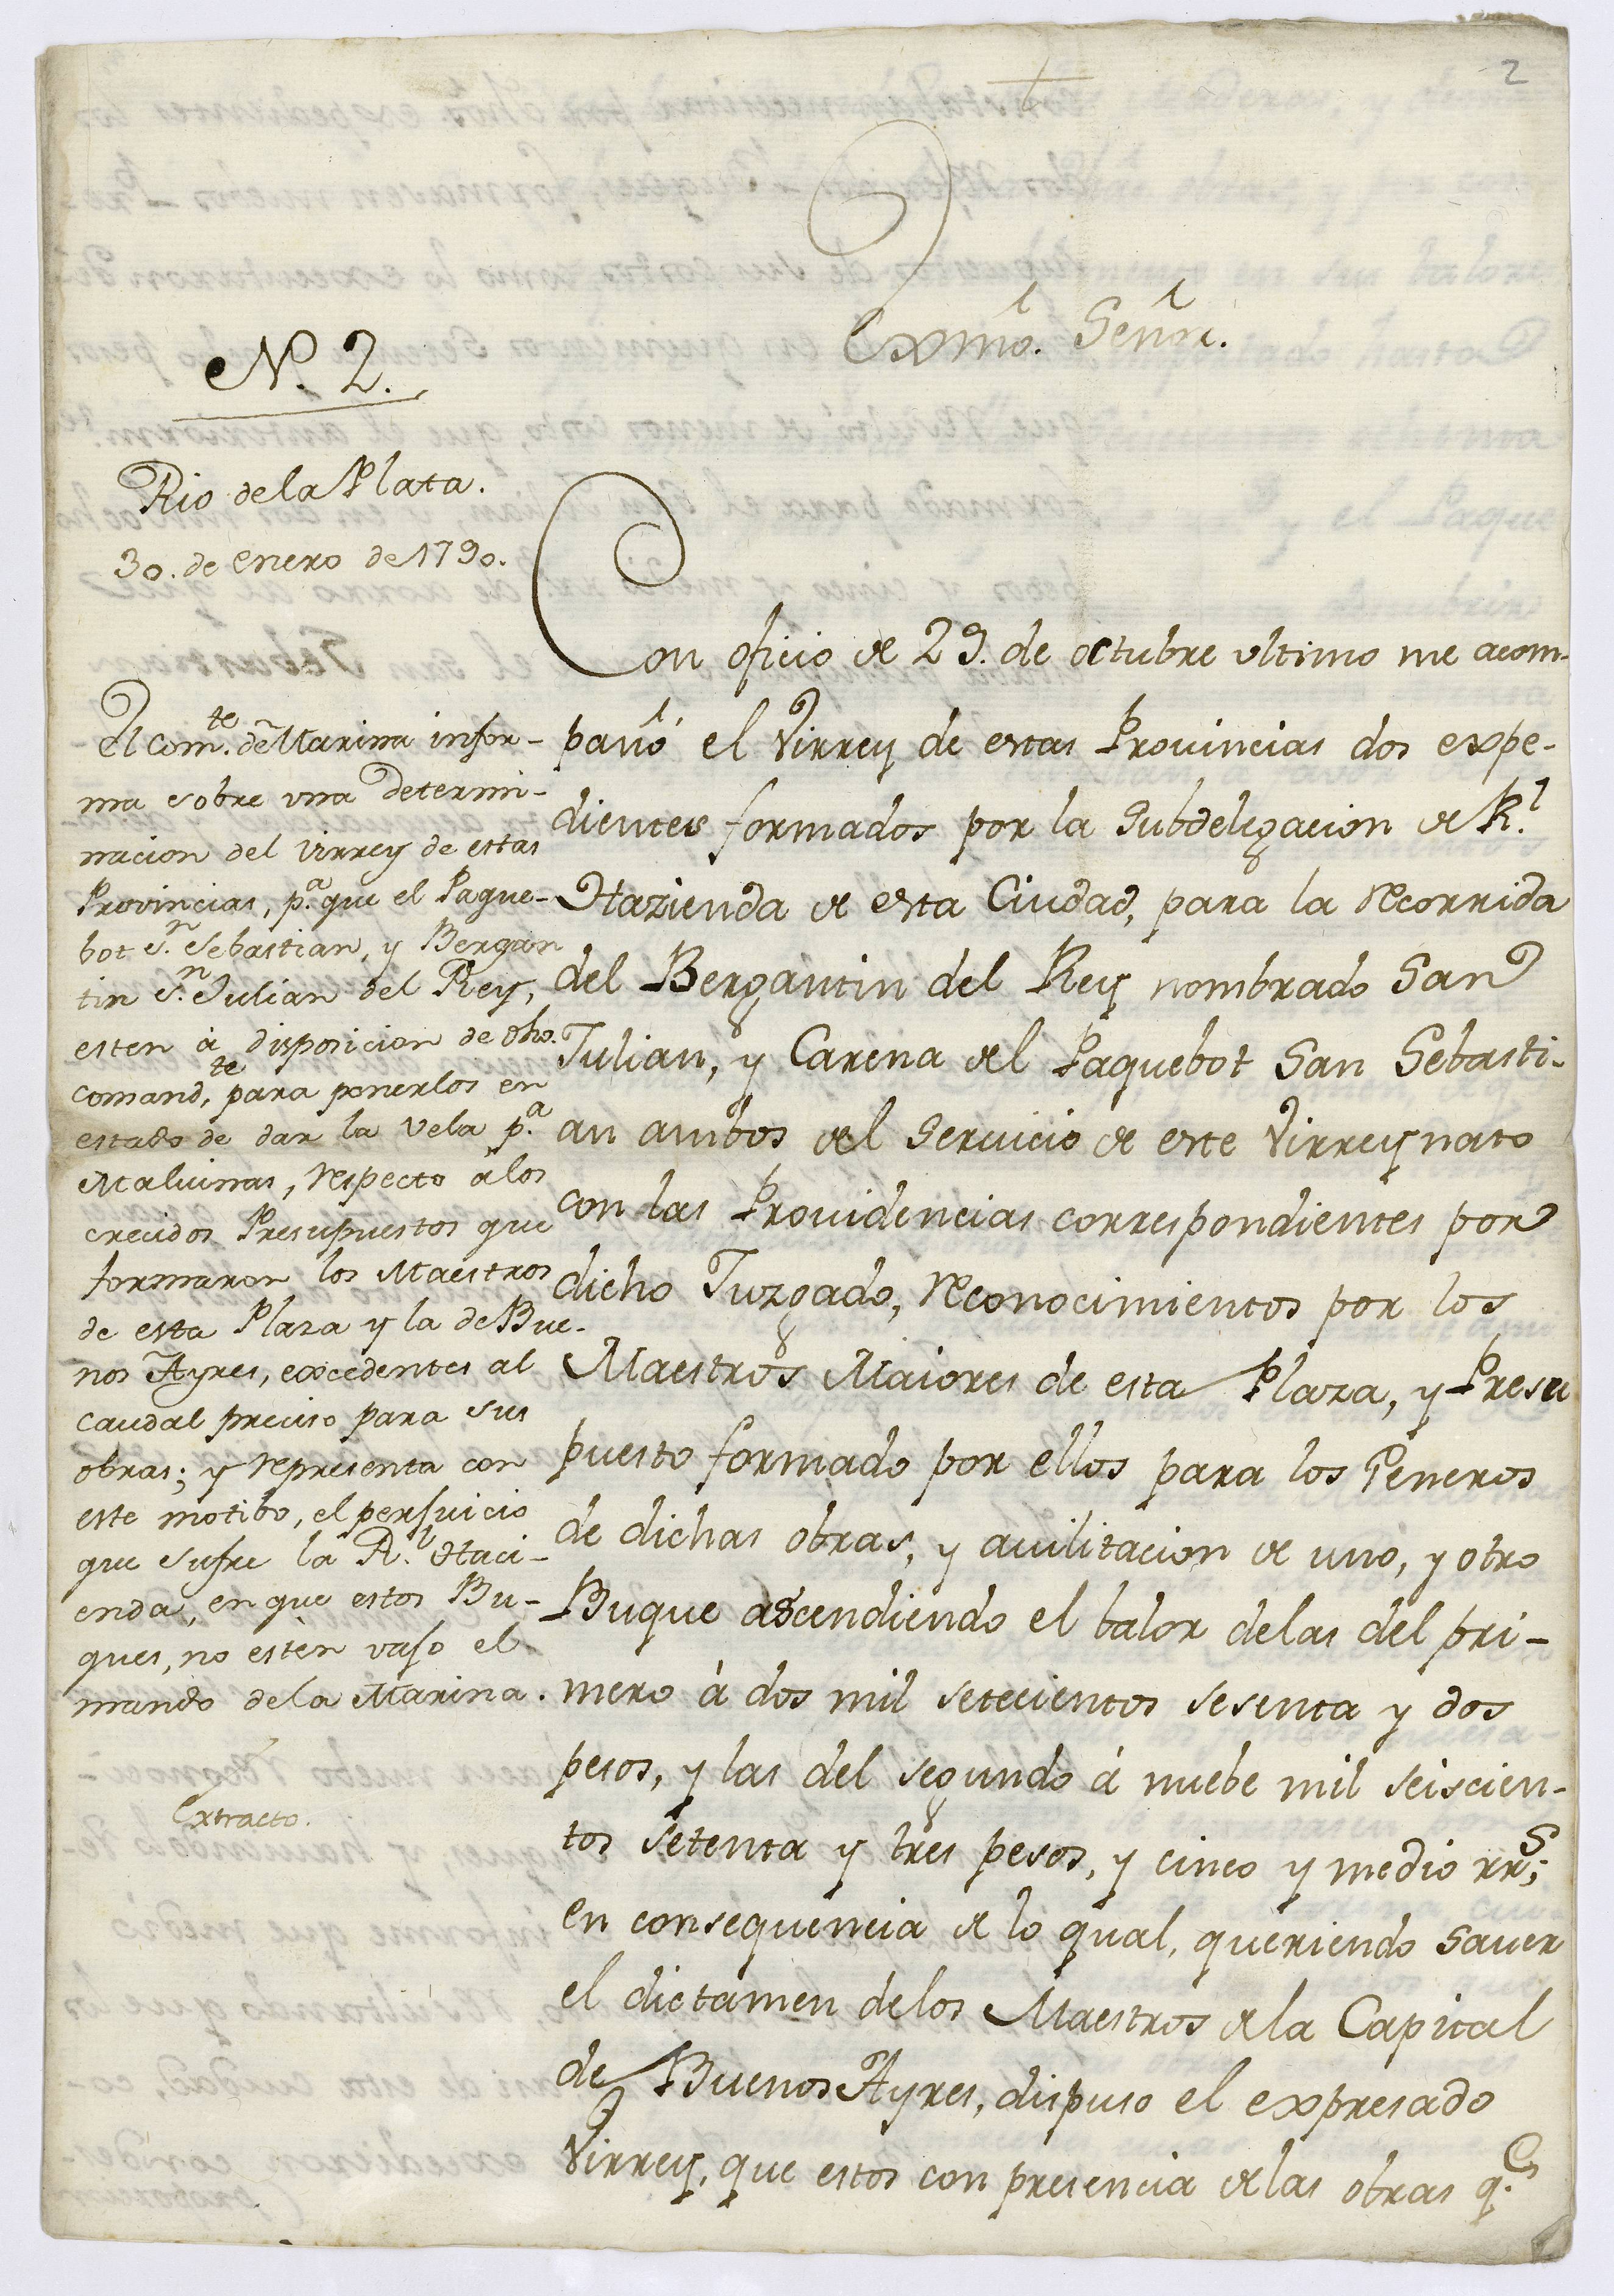 2
Exmo. Señor.
N. 2.
Rio de la Plata.
30. de enero de 1790.
El Com.te de Marina infor-
ma sobre una determi-
nacion del Virrey de estas
Provincias, p.a que el Paque-
bot S.n Sebastian, y Bergan
tin S.n Julian del Rey,
esten à disposicion de dho.
Comand.te para ponerlos en
estado de dar la vela p.a
Malvinas, respecto à los
crecidos Presupuestos que
formaron los Maestros
de esta Plaza y la de Bue-
nos Ayres, excedentes al
caudal preciso para sus
obras; y representa con
este motibo, el perjuicio
que sufre la R.l Haci-
enda, en que estos Bu-
ques, no estèn vajo el
mando de la Marina.
Extracto.
Con oficio de 29. de octubre ultimo me acom-
pañó el Virrey de estas Provincias dos expe-
dientes formados por la Subdelegacion de R.l
Hazienda de esta Ciudad, para la recorrida
del Bergantin del Rey nombrado San
Julian, y Carena del Paquebot San Sebasti-
an ambos del Servicio de este Virreynato
con las Providencias correspondientes por
dicho Juzgado, reconocimientos por los
Maestros Maiores de esta Plaza, y Presu
puesto formado por ellos para los Generos
de dichas obras, y avilitacion de uno, y otro
Buque ascendiendo el balor delas del pri-
mero à dos mil setecientos sesenta y dos
pesos, y las del segundo à nuebe mil seiscien-
tos setenta y tres pesos, y cinco y medio rr.s;
en consequencia de lo qual, queriendo saver
el dictamen delos Maestros de la Capital
de Buenos Ayres, dispuso el expresado
Virrey, que estos con presencia de las obras q.e